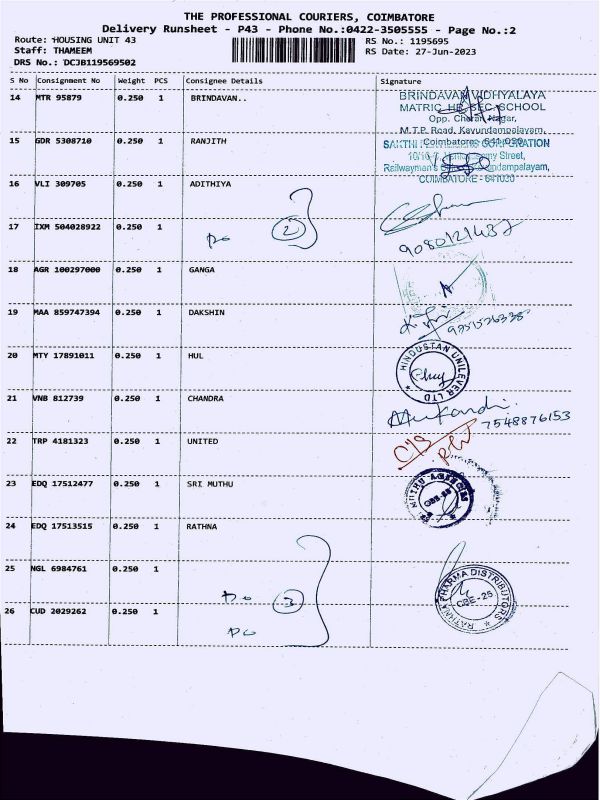 THE PROFESSIONAL COURIERS, COIMBATORE
Delivery Runsheet - P43 - Phone No.:0422-3505555 - Page No.:2
Route: HOUSING UNIT 43 RS No.: 1195695
Staff: THAMEEM RS Date: 27-Jun-2023
DRS No.: DCJB119569502
S No Consignment No Weight PCS Consignee Details Signature
14 MTR 95879 0.250 1 BRINDAVAN..
BRINDAVAN VIDHYALAYA
MATRIC HR SEC SCHOOL
Opp. Cheran Nagar,
M.T.P. Road, Kavundampalayam,
Coimbatore- 641 029
15 GDR 5308710 0.250 1 RANJITH
SAKTHI CORPORATION
Street,
Railwayman's
COIMBATORE - 641030
16 VLI 309705 0.250 1 ADITHIYA
17 IXM 504028922 0.250 1 Do 2
9080121437
18 AGR 100297000 0.250 1 GANGA
19 MAA 859747394 0.250 1 DAKSHIN
20 MTY 17891011 0.250 1 HUL
HINDUSTAN UNILEVER LTD
21 VNB 812739 0.250 1 CHANDRA
7548876153
22 TRP 4181323 0.250 1 UNITED
23 EDQ 17512477 0.250 1 SRI MUTHU
MUTHU AGENCIES
CBE-25
24 EDQ 17513515 0.250 1 RATHNA
25 NGL 6984761 0.250 1 Do 3
RATHNA PHARMA DISTRIBUTORS
CBE-25
26 CUD 2029262 0.250 1 Do